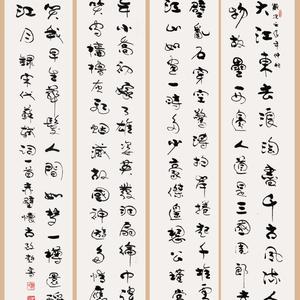 大江東去浪淘盡千古風流人
物故壘西邊人道是三國周郎赤
壁亂石穿空驚濤拍岸捲起千堆雪
江山如畫一時多少豪傑遙想公瑾當
年小喬初嫁了雄姿英發羽扇綸巾談
笑間檣櫓灰飛煙滅故國神遊多情應
笑我早生華髮人間如夢一樽還酹
江月 錄宋代蘇軾詞一首赤壁懷古